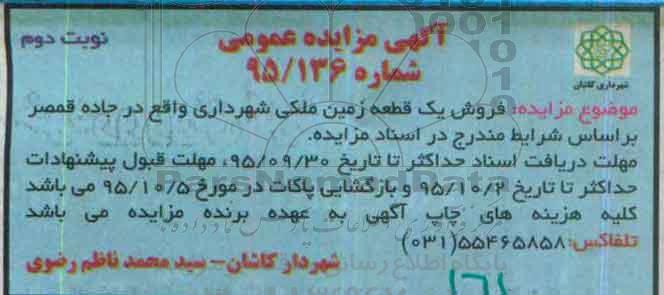 آگهی مزایده عمومی
نوبت دوم
شماره ۹۵/۱۳۶
شهرداری کاشان
موضوع مزایده: فروش یک قطعه زمین ملکی شهرداری واقع در جاده قمصر
براساس شرایط مندرج در اسناد مزایده.
مهلت دریافت اسناد حداکثر تا تاریخ ۹۵/۰۹/۳۰، مهلت قبول پیشنهادات
حداکثر تا تاریخ ۹۵/۱۰/۲ و بازگشایی پاکات در مورخ ۹۵/۱۰/۵ می باشد
کلیه هزینه های چاپ آگهی به عهده برنده مزایده می باشد
تلفاکس: ۵۵۴۶۵۸۵۸(۰۳۱)
شهردار کاشان – سید محمد ناظم رضوی
ParsNamadData